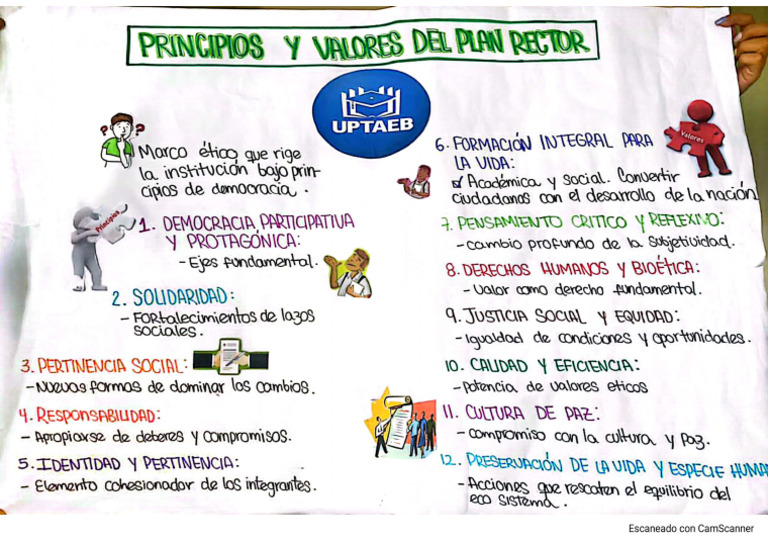 PRINCIPIOS Y VALORES DEL PLAN RECTOR
UPTAEB
Marco ético que rige
la institución bajo prin-
cipios de democracia.
Principios
1. DEMOCRACIA PARTICIPATIVA
Y PROTAGÓNICA:
- Ejes fundamental.
2. SOLIDARIDAD:
- Fortalecimientos de lazos
sociales.
3. PERTINENCIA SOCIAL:
- Nuevas formas de dominar los cambios.
4. RESPONSABILIDAD:
- Apropiarse de deberes y compromisos.
5. IDENTIDAD Y PERTINENCIA:
- Elemento cohesionador de los integrantes.
6. FORMACIÓN INTEGRAL PARA
LA VIDA:
Valores
Académica y social. Convertir
ciudadanos con el desarrollo de la nación
7. PENSAMIENTO CRITICO Y REFLEXIVO:
- cambio profundo de la subjetividad.
8. DERECHOS HUMANOS Y BIOÉTICA:
- Valor como derecho fundamental.
9. JUSTICIA SOCIAL Y EQUIDAD:
- Igualdad de condiciones y oportunidades.
10. CALIDAD Y EFICIENCIA:
- Potencia de valores eticos
11. CULTURA DE PAZ:
- compromiso con la cultura y paz.
12. PRESERVACIÓN DE LA VIDA Y ESPECIE HUMA
- Acciones que rescaten el equilibrio del
eco sistema.
Escaneado con CamScanner